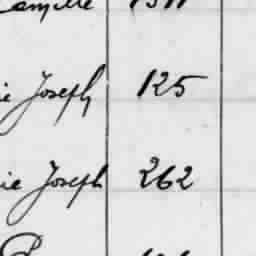 Camille
ie Joseph 125
ie Joseph 262